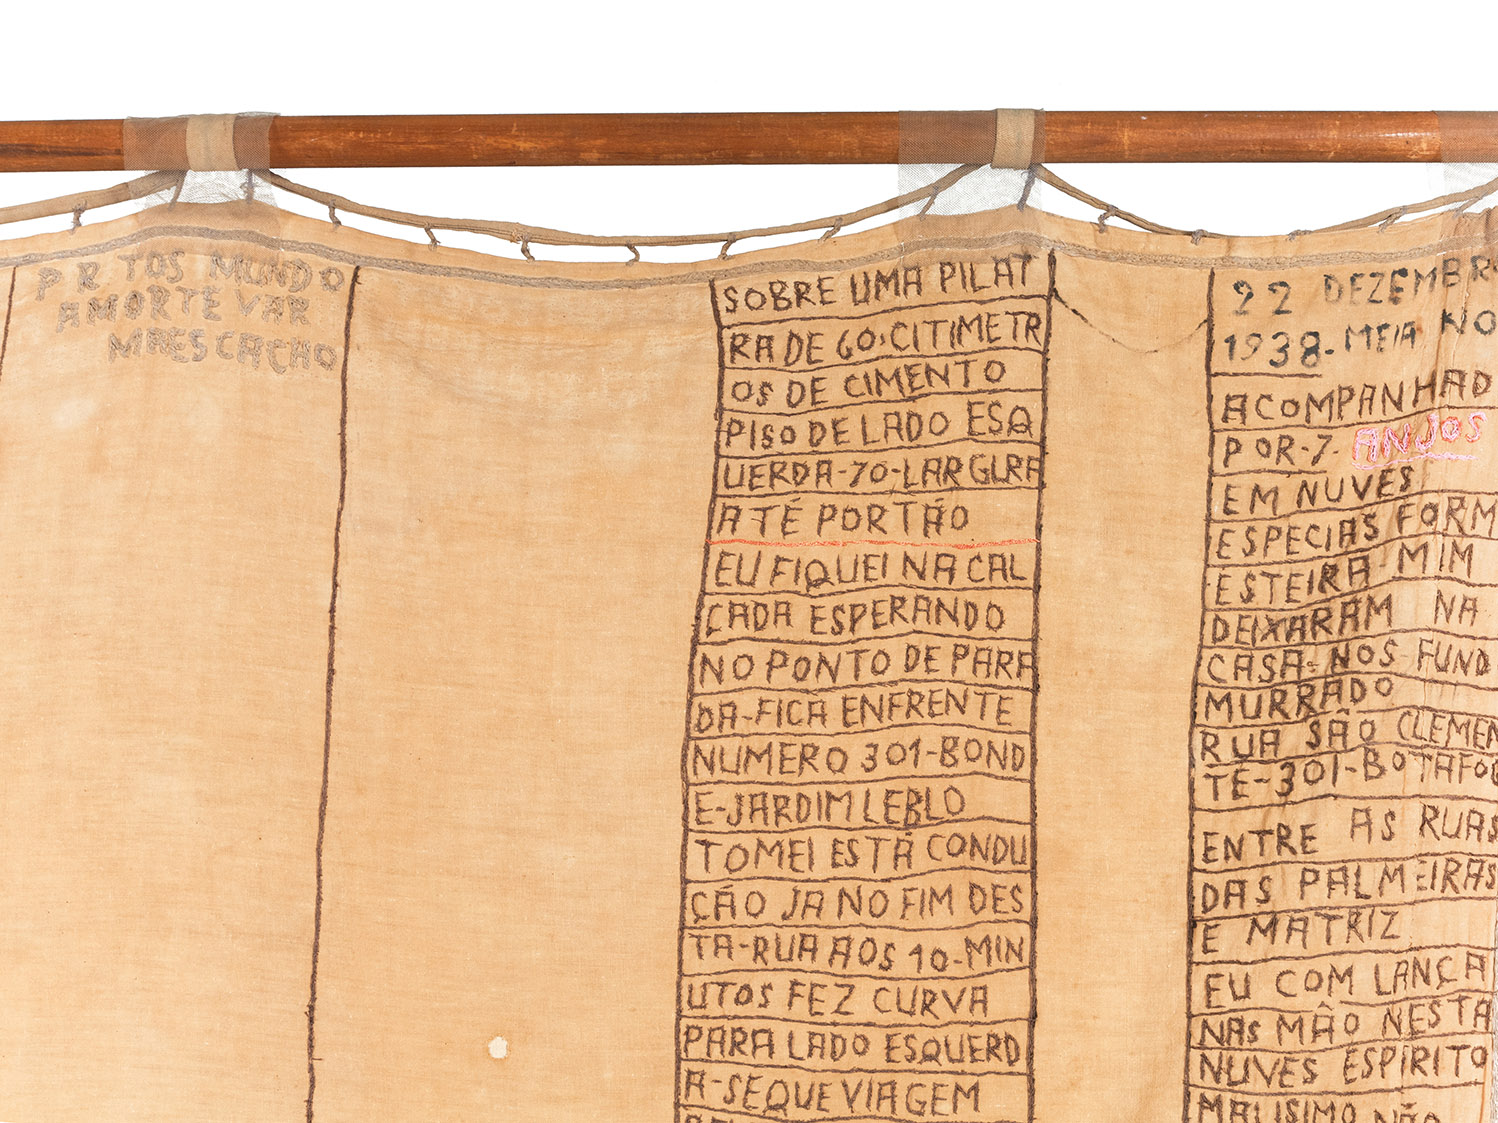 P R TOS MUNDO
AMORTE VAR
MAES CACHO
SOBRE UMA PILAT
RA DE 60:CITIMETR
OS DE CIMENTO
PISO DE LADO ESQ
UERDA-70-LARGURA
ATÉ PORTÃO
EU FIQUEI NA CAL
ÇADA ESPERANDO
NO PONTO DE PARA
DA-FICA ENFRENTE
NUMERO 301-BOND
E-JARDIM LEBLO
TOMEI ESTÁ CONDU
ÇÃO JA NO FIM DES
TA-RUA AOS 10-MIN
UTOS FEZ CURVA
PARA LADO ESQUERD
A-SEQUE VIAGEM
22 DEZEMBRO
1938-MEIA NO
ACOMPANHAD
POR-7-ANJOS
EM NUVES
ESPECIAS FORM
ESTEIRA-MIM
DEIXARAM NA
CASA-NOS FUND
MURRADO
RUA SÃO CLEMEN
TE-301-BOTAFOG
ENTRE AS RUAS
DAS PALMEIRAS
E MATRIZ
EU COM LANÇA
NAS MÃO NESTA
NUVES ESPIRITO
MALISIMO NÃO